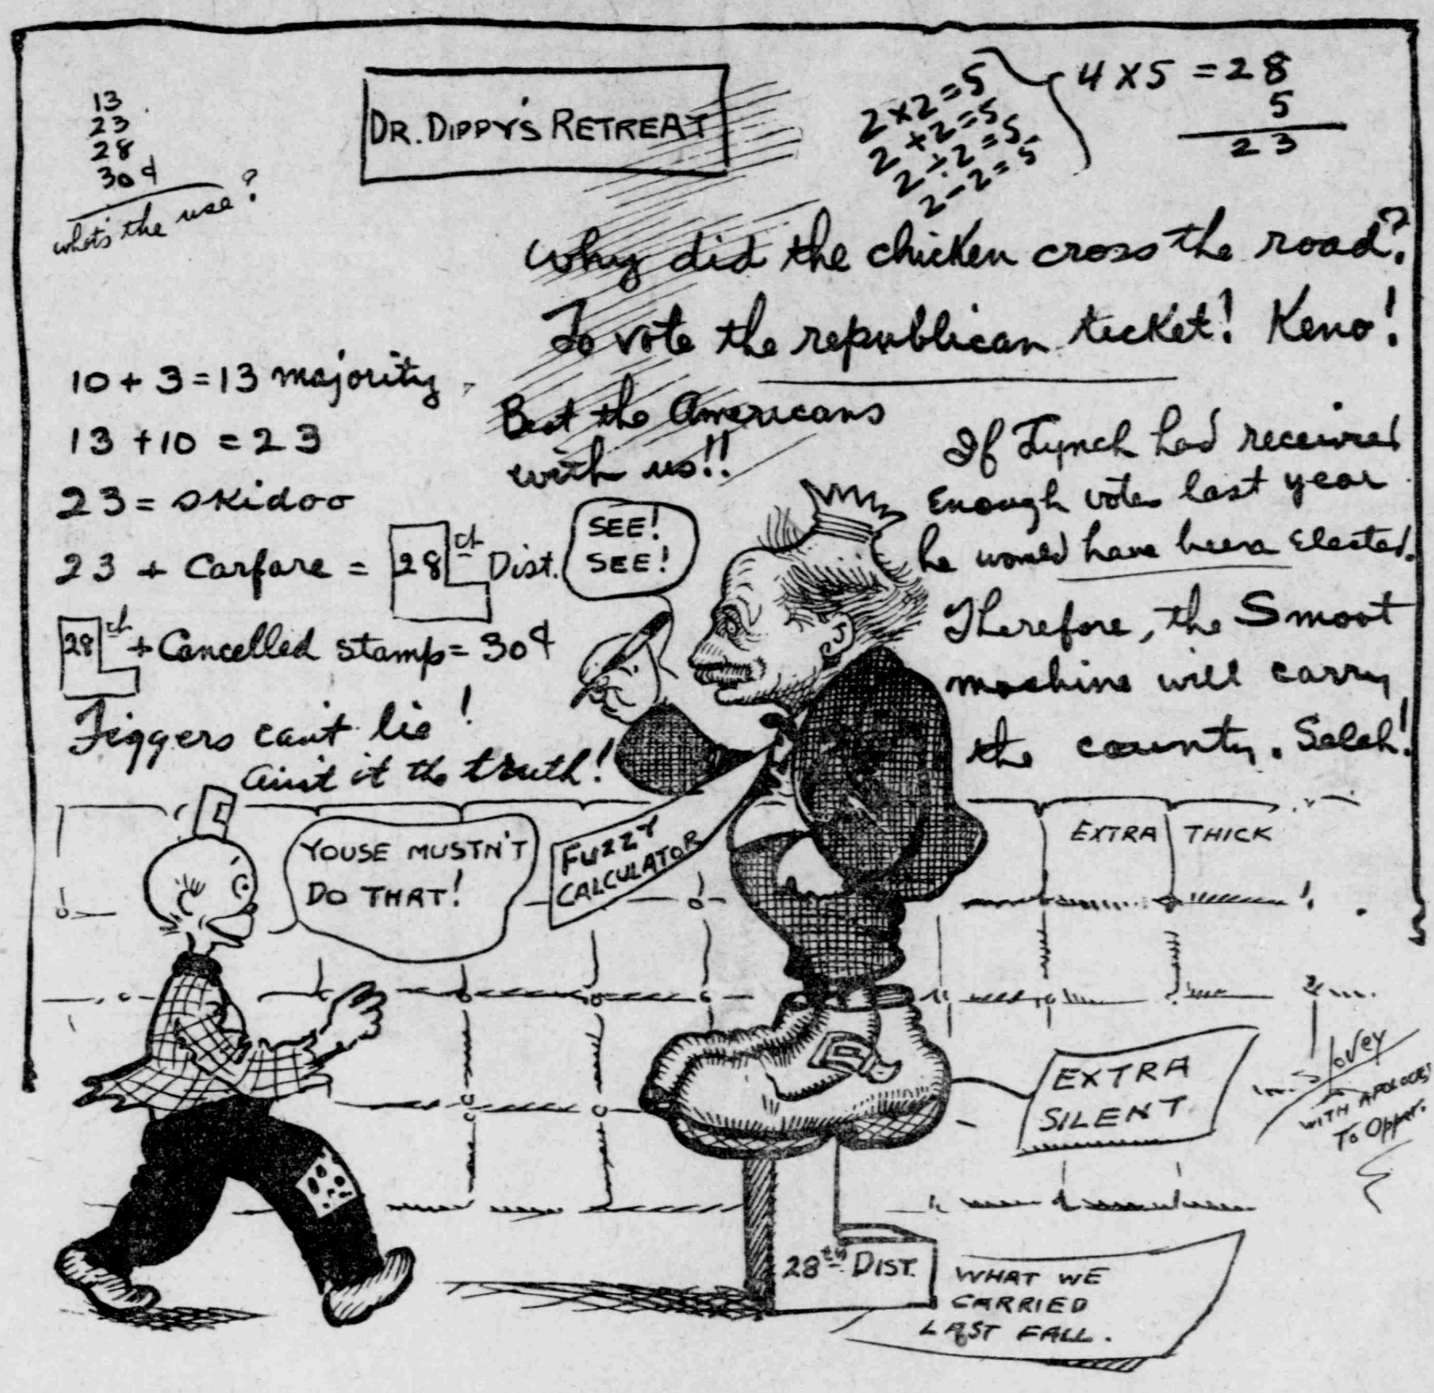 13
23
28
30¢
what's the use?
DR. DIPPY'S RETREAT
2×2=5
2+2=5
2÷2=5
2-2=5
4×5=28
5
23
Why did the chicken cross the road?
To vote the republican ticket! Keno!
10+3=13 majority
13+10=23
23=skidoo
23 + Carfare = 28th Dist.
28th + Cancelled stamp = 30¢
Figgers can't lie!
Ain't it the truth!
Beat the Americans
with us!!
If Lynch had received
Enough votes last year
he would have been Elected.
Therefore, the Smoot
machine will carry
the county. Selah!
SEE!
SEE!
YOUSE MUSTN'T
DO THAT!
FUZZY
CALCULATOR
EXTRA THICK
EXTRA
SILENT
28TH DIST.
WHAT WE
CARRIED
LAST FALL.
WITH APOLOGIES
To Opper.